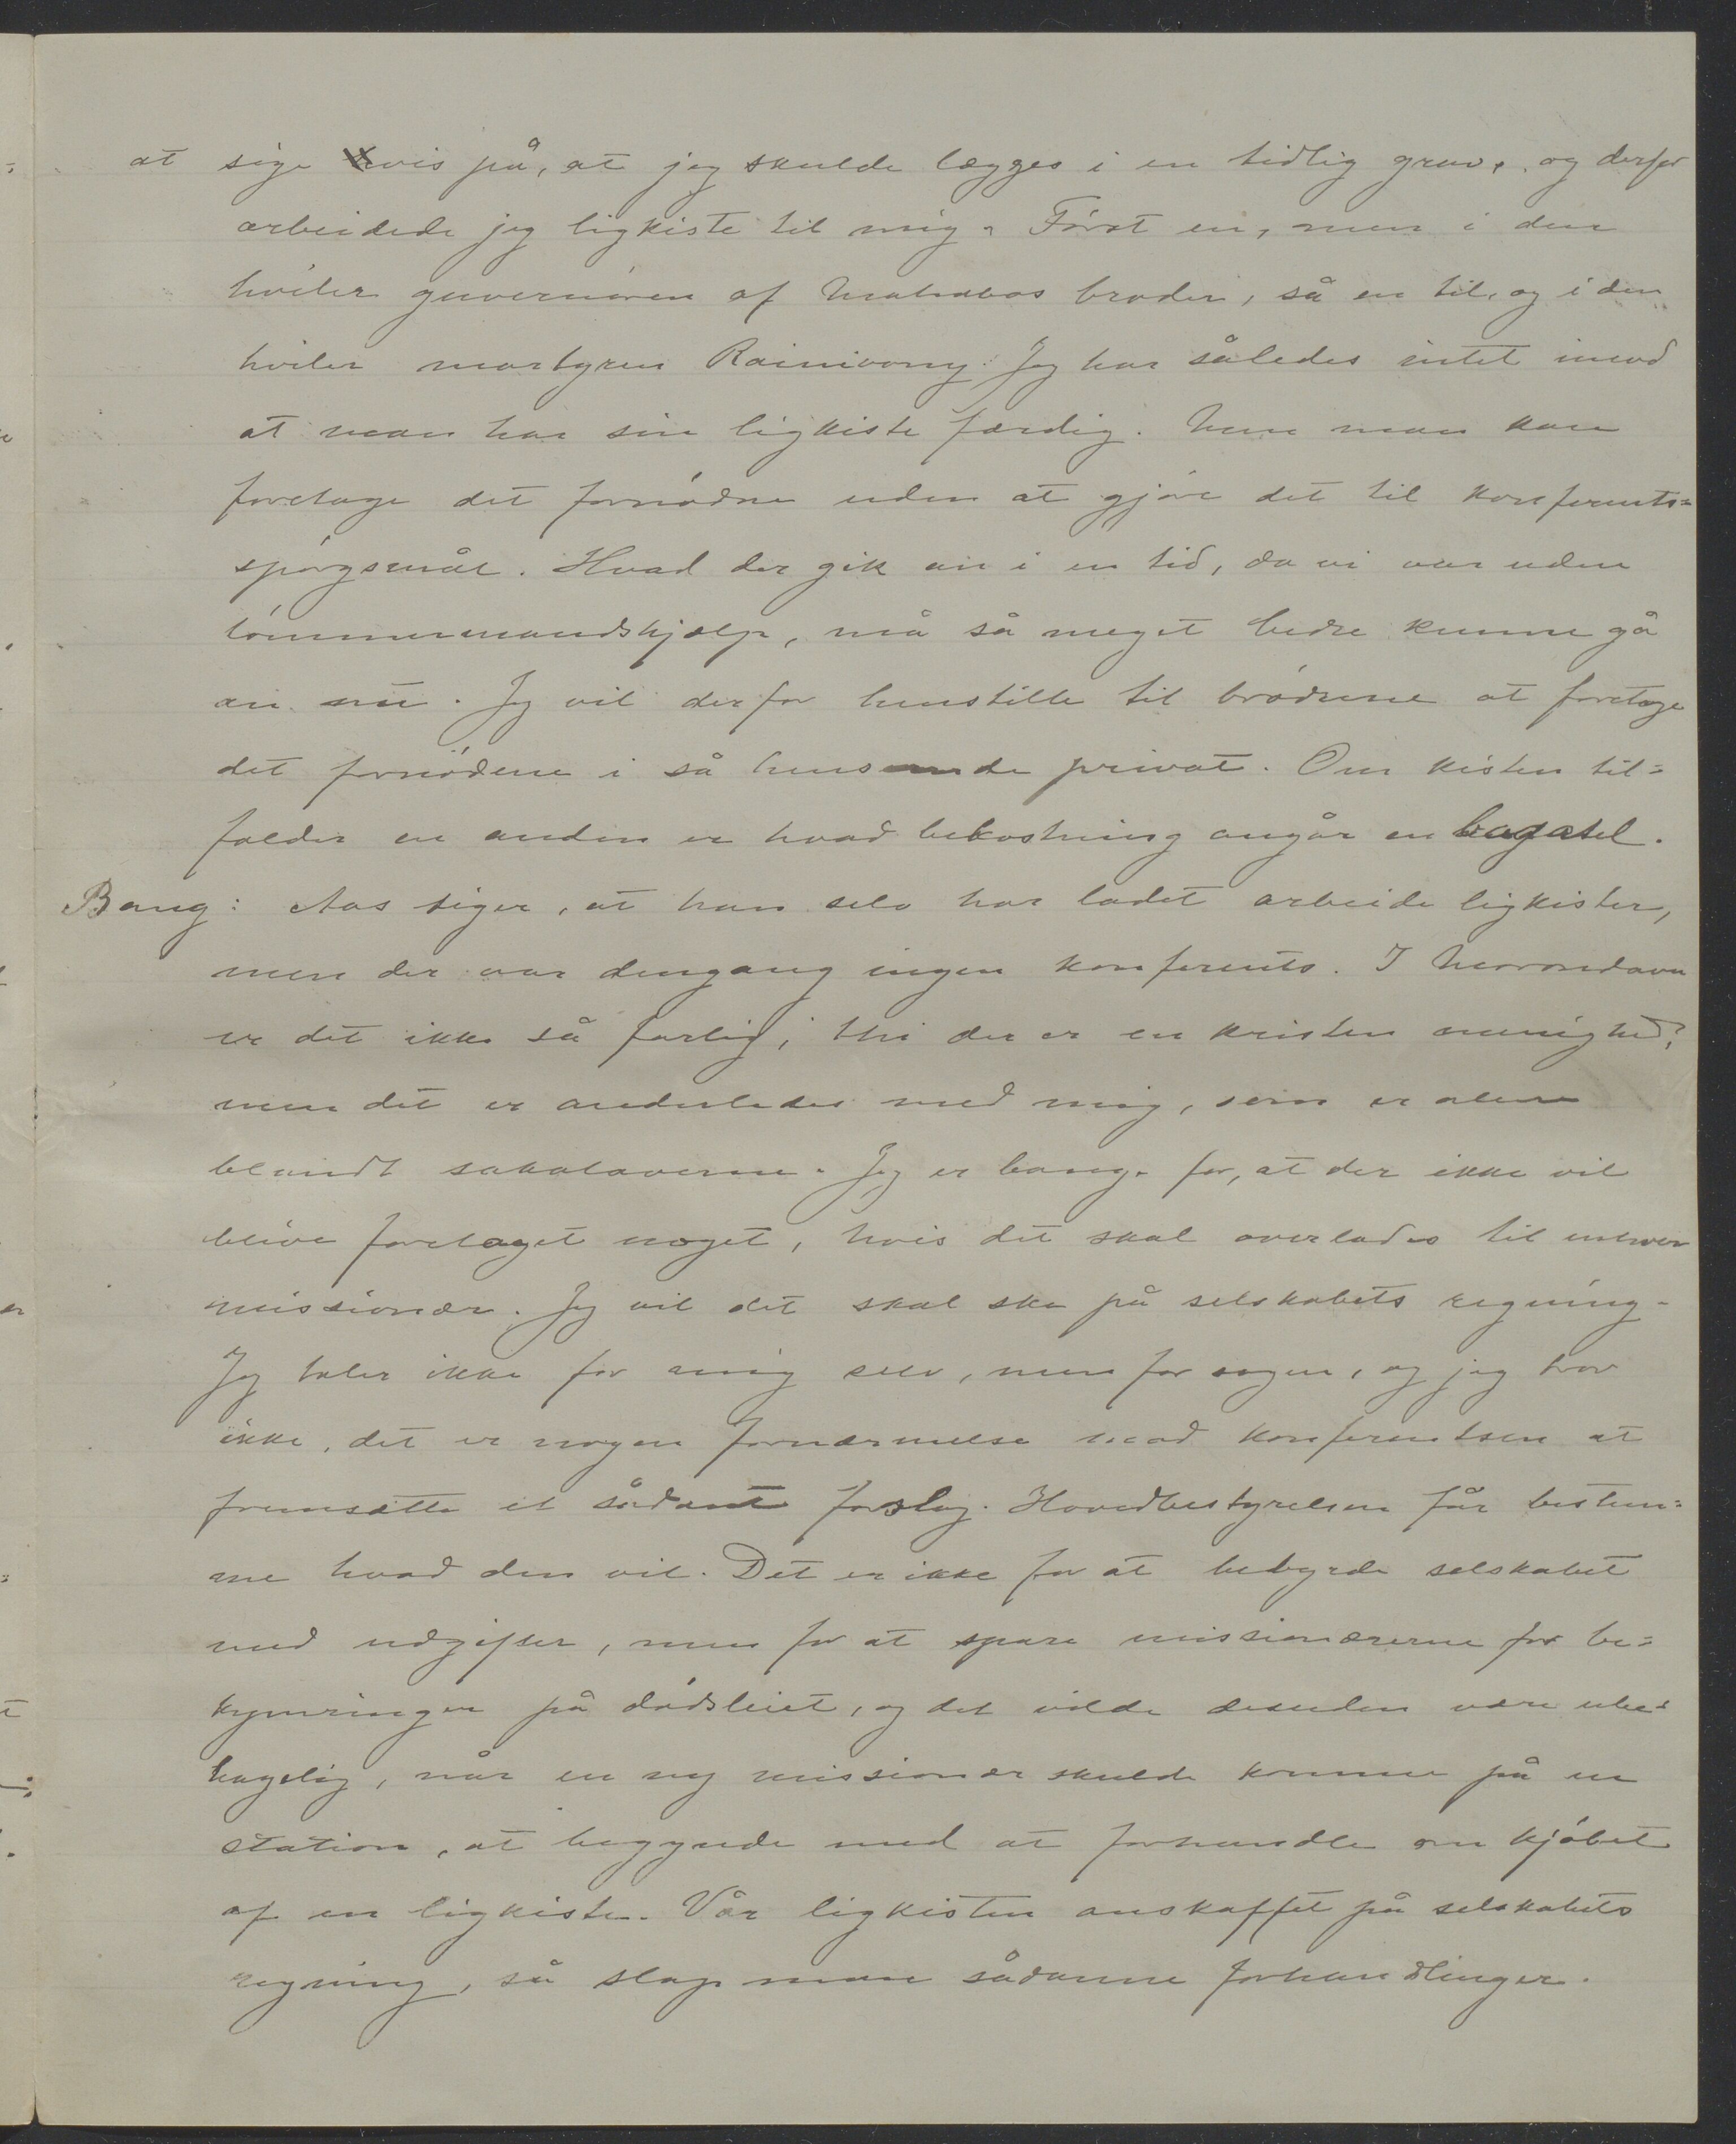 at sige vis på, at jeg skulde lægges i en tidlig grav, og derfor
arbeidede jeg ligkiste til mig. Först en, men i den
hviler guvernören af Mahabos broder, så en til, og i den
hviler martyren Rainivony. Jeg har således intet imod
at man har sin ligkiste færdig. Men man kan
foretage det fornödne uden at gjöre det til konferents=
spörgsmål. Hvad der gik an i en tid, da vi var uden
tömmermandshjælp, må så meget bedre kunne gå
an nu. Jeg vil derfor henstille til brödrene at foretage
det fornödene i så henseende privat. Om kisten til=
falder en anden er hvad bekostning angår en bagatel.
Bang: Aas siger, at han selv har ladet arbeide ligkister,
men der var dengang ingen konferents. I Morondava
er det ikke så farlig, thi der er en kristen menighed;
men det er anderledes med mig, som er alene
blandt sakalaverne. Jeg er bange for, at der ikke vil
blive foretaget noget, hvis det skal overlades til enhver
missionær. Jeg vil det skal ske på selskabets regning.
Jeg taler ikke for mig selv, men for sagen, og jeg tror
ikke, det er nogen fornærmelse mod konferentsen at
fremsætte et sådant forslag. Hovedbestyrelsen får bestem=
me hvad den vil. Det er ikke for at bebyrde selskabet
med udgifter, men for at spare missionærerne for be=
kymringer på dödsleiet, og det vilde desuden være ube=
hagelig, når en ny missionær skulde komme på en
station, at begynde med at forhandle om kjöbet
af en ligkiste. Vår ligkisten anskaffet på selskabets
regning, så slap man sådanne forhandlinger.